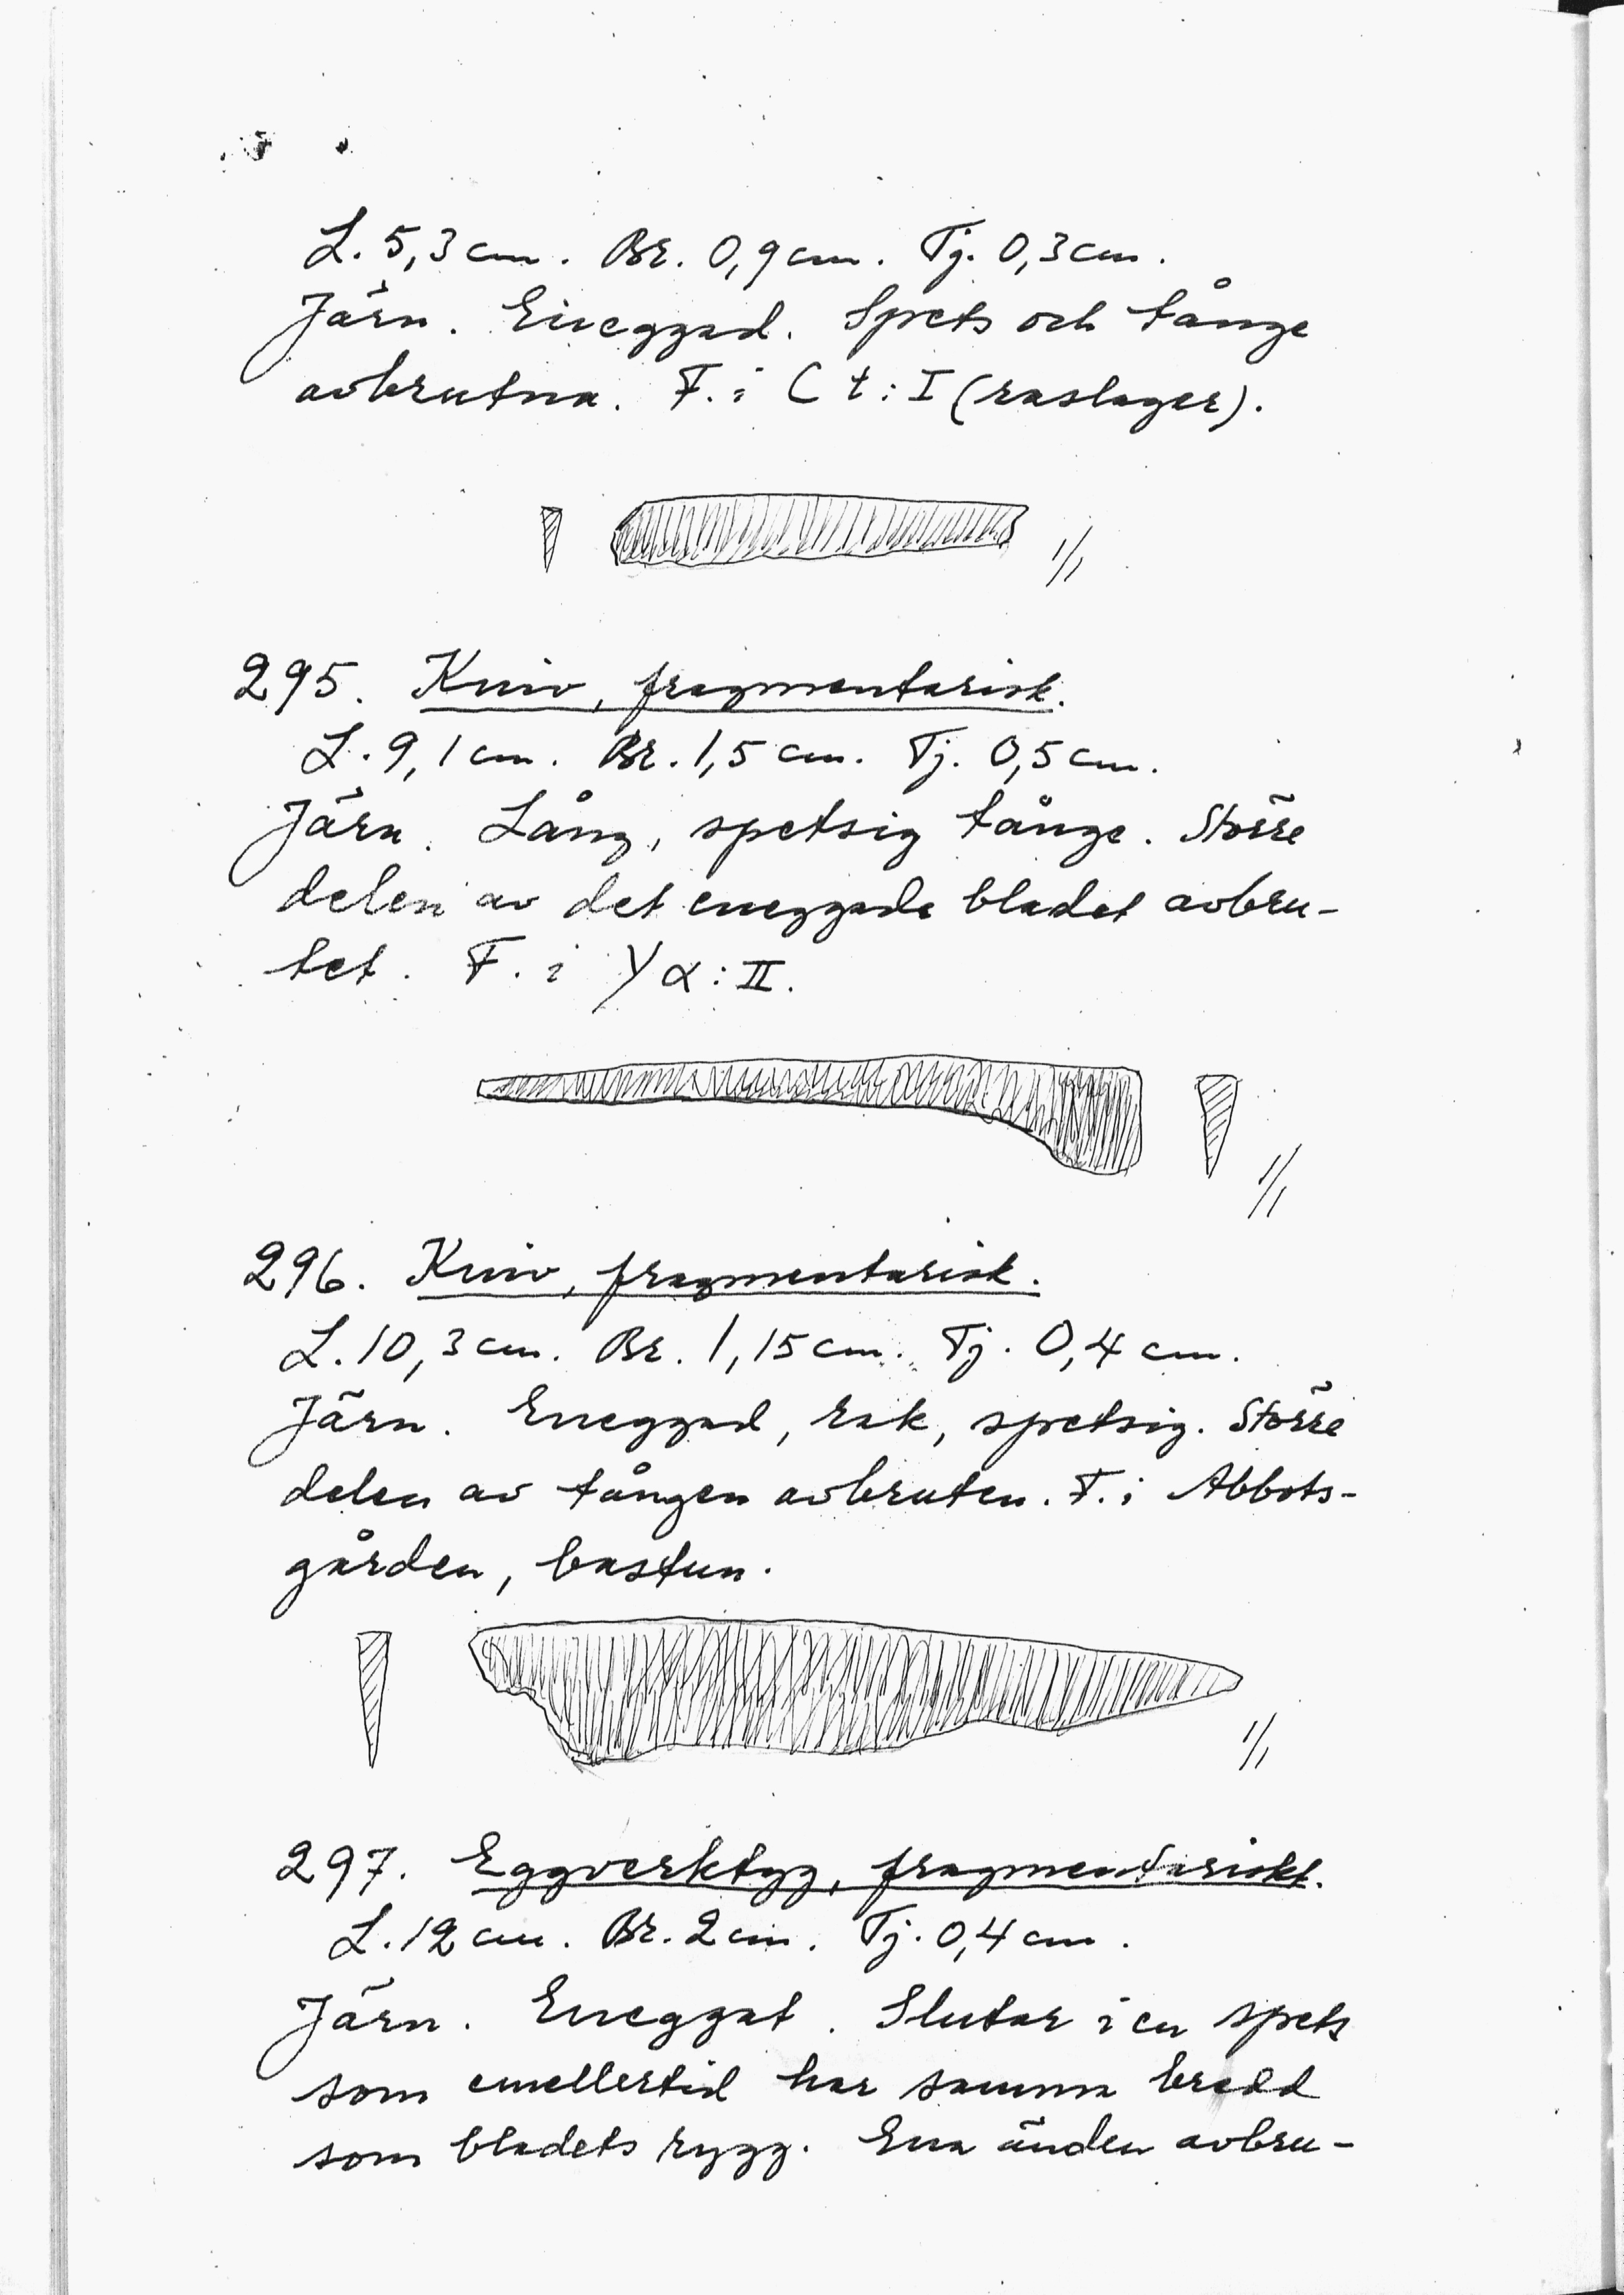 L. 5,3 cm. Br. 0,9 cm. Tj. 0,3 cm.
Järn. Eneggad. Spets och tånge
avbrutna. F. i C t : I (raslager).
1/1
295. Kniv, fragmentarisk.
L. 9,1 cm. Br. 1,5 cm. Tj. 0,5 cm.
Järn. Lång, spetsig tånge. Större
delen av det eneggade bladet avbru-
tet. F. i Y α : II.
1/1
296. Kniv, fragmentarisk.
L. 10,3 cm. Br. 1,15 cm. Tj. 0,4 cm.
Järn. Eneggad, rak, spetsig. Större
delen av tången avbruten. F. i Abbots-
gården, bastun.
1/1
297. Eggverktyg, fragmentariskt.
L. 12 cm. Br. 2 cm. Tj. 0,4 cm.
Järn. Eneggat. Slutar i en spets
som emellertid har samma bredd
som bladets rygg. Ena änden avbru-